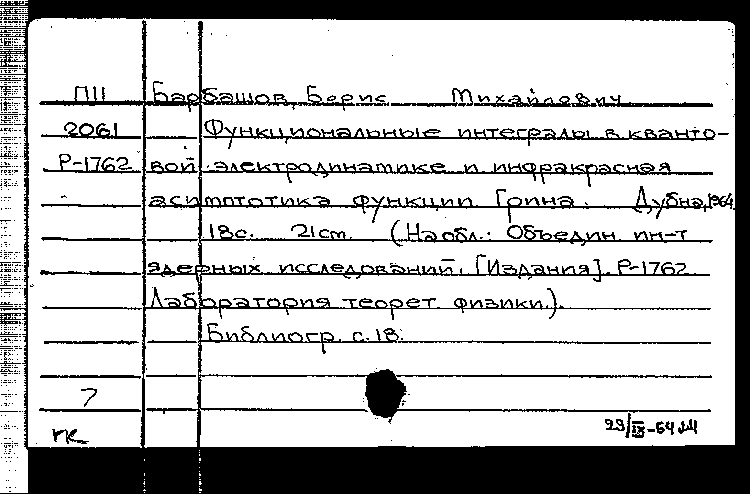 П11 Барбашов, Борис Михайлович
2061 Функциональные интегралы в кванто-
Р-1762 вой электродинамике и инфракрасная
асимптотика функции Грина. Дубна, 1964
18с. 21см. (На обл.: Объедин. ин-т
ядерных исследований. [Издания]. Р-1762.
Лаборатория теорет. физики.).
Библиогр. с. 18.
7
23/IX-64